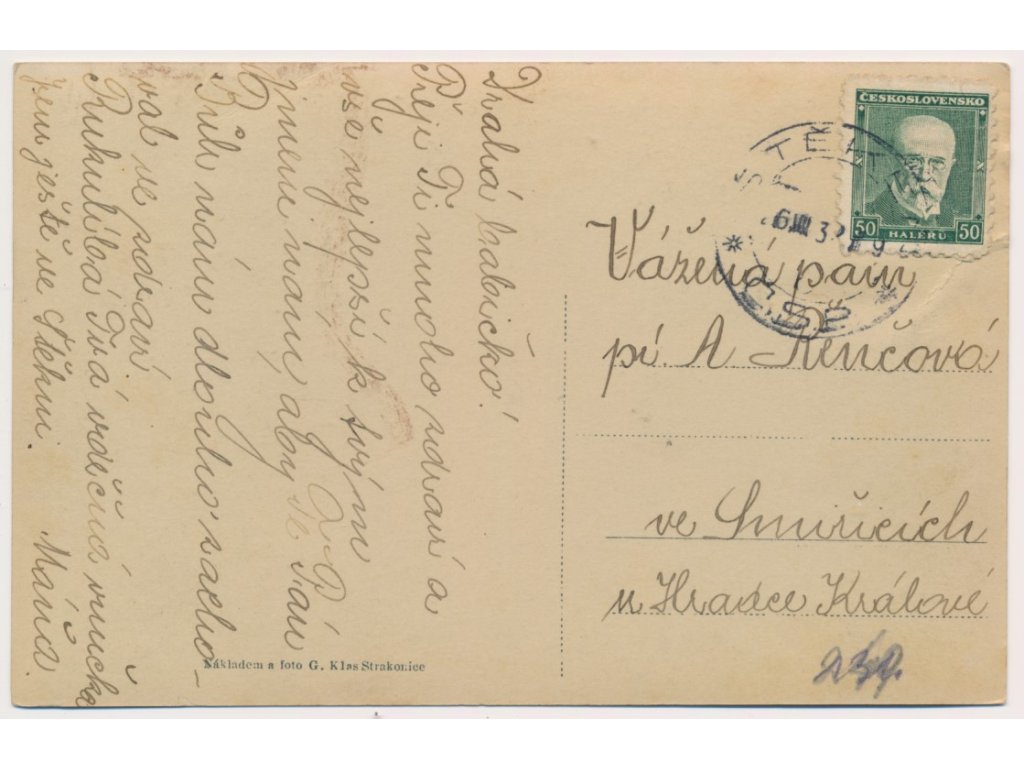 Drahá babičko!
Přeji Ti mnoho zdraví a
vše nejlepší k tvým
jmeninám, aby Tě Pán
Bůh nám dlouho zacho-
val ve zdraví.
Rukulíbá Tvá vděčná vnučka
jsem ještě ve Štěkni. Máňa
Nákladem a foto G. Klas Strakonice
ČESKOSLOVENSKO
50 HALÉŘŮ 50
ŠTĚKE
6.VIII 3
ČSP
Vážená paní
pí. A Kenčová
ve Smiřicích
u Hradce Králové